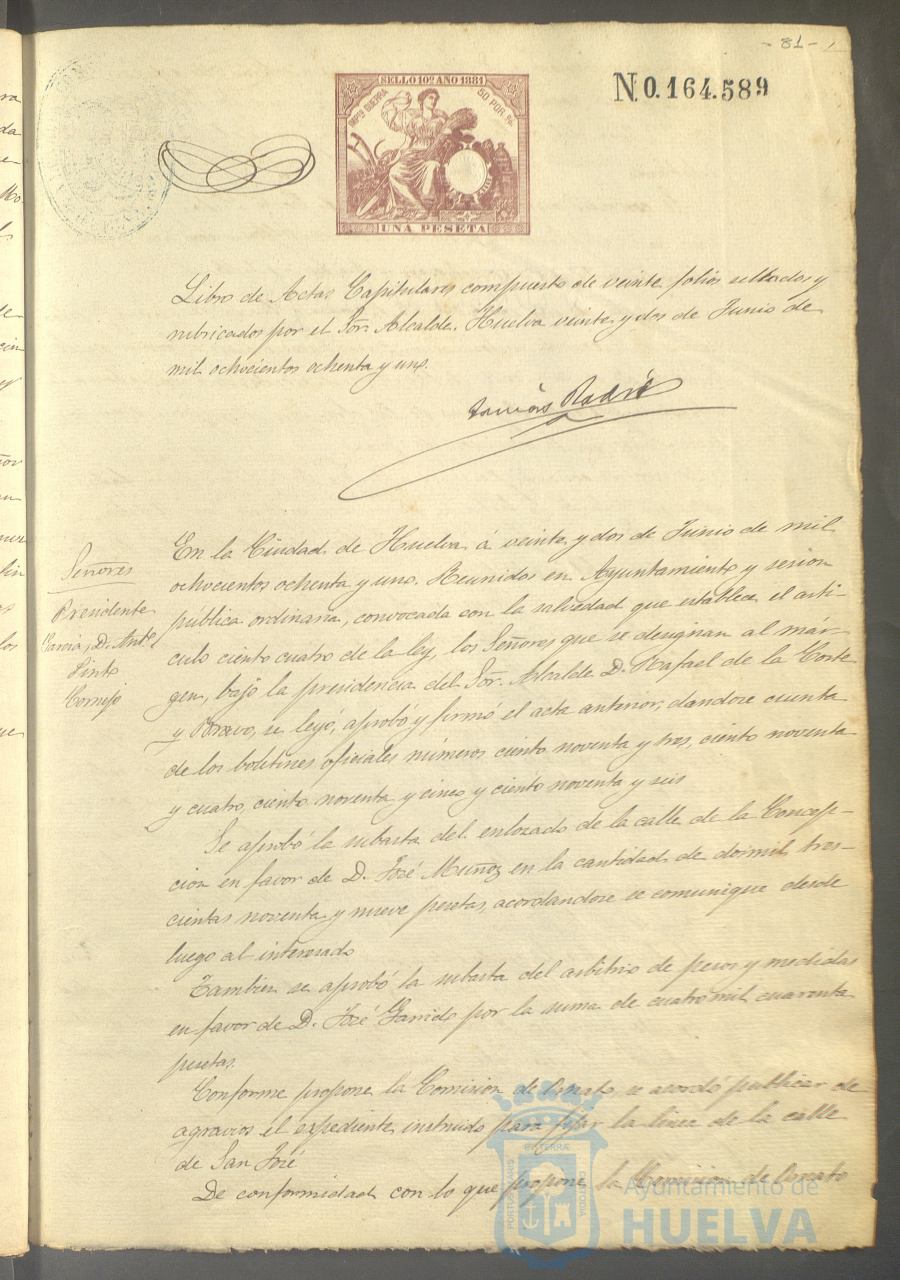 - 81 -
SELLO 10º AÑO 1881
IMPtº GUERRA
50 POR %
UNA PESETA
N.0.164.589
Libro de Actas Capitulares compuesto de veinte folios sellados y
rubricados por el Sor. Alcalde. Huelva veinte y dos de Junio de
mil ochocientos ochenta y uno.
Señores
Presidente
García, D. Antº
Pinto
Cornejo
En la Ciudad de Huelva á veinte y dos de Junio de mil
ochocientos ochenta y uno. Reunidos en Ayuntamiento y sesion
pública ordinaria, convocada con la salvedad que establece el arti-
culo ciento cuatro de la ley, los Señores que se designan al már-
gen, bajo la presidencia del Sor. Alcalde D. Rafael de la Corte
y Bravo, se leyó, aprobó y firmó el acta anterior, dandose cuenta
de los boletines oficiales números ciento noventa y tres, ciento noventa
y cuatro, ciento noventa y cinco y ciento noventa y seis
Se aprobó la subasta del enlozado de la calle de la Concep-
cion en favor de D. José Muñoz en la cantidad de dosmil tres-
cientas noventa y nueve pesetas, acordandose se comunique desde
luego al interesado
Tambien se aprobó la subasta del arbitrio de pesos y medidas
en favor de D. José Garrido por la suma de cuatro mil cuarenta
pesetas.
Conforme propone la Comision de Ornato, se acordó publicar de
agravios el expediente instruido para fijar la linea de la calle
de San José
De conformidad con lo que propone la Comision de Ornato
Ayuntamiento de
HUELVA